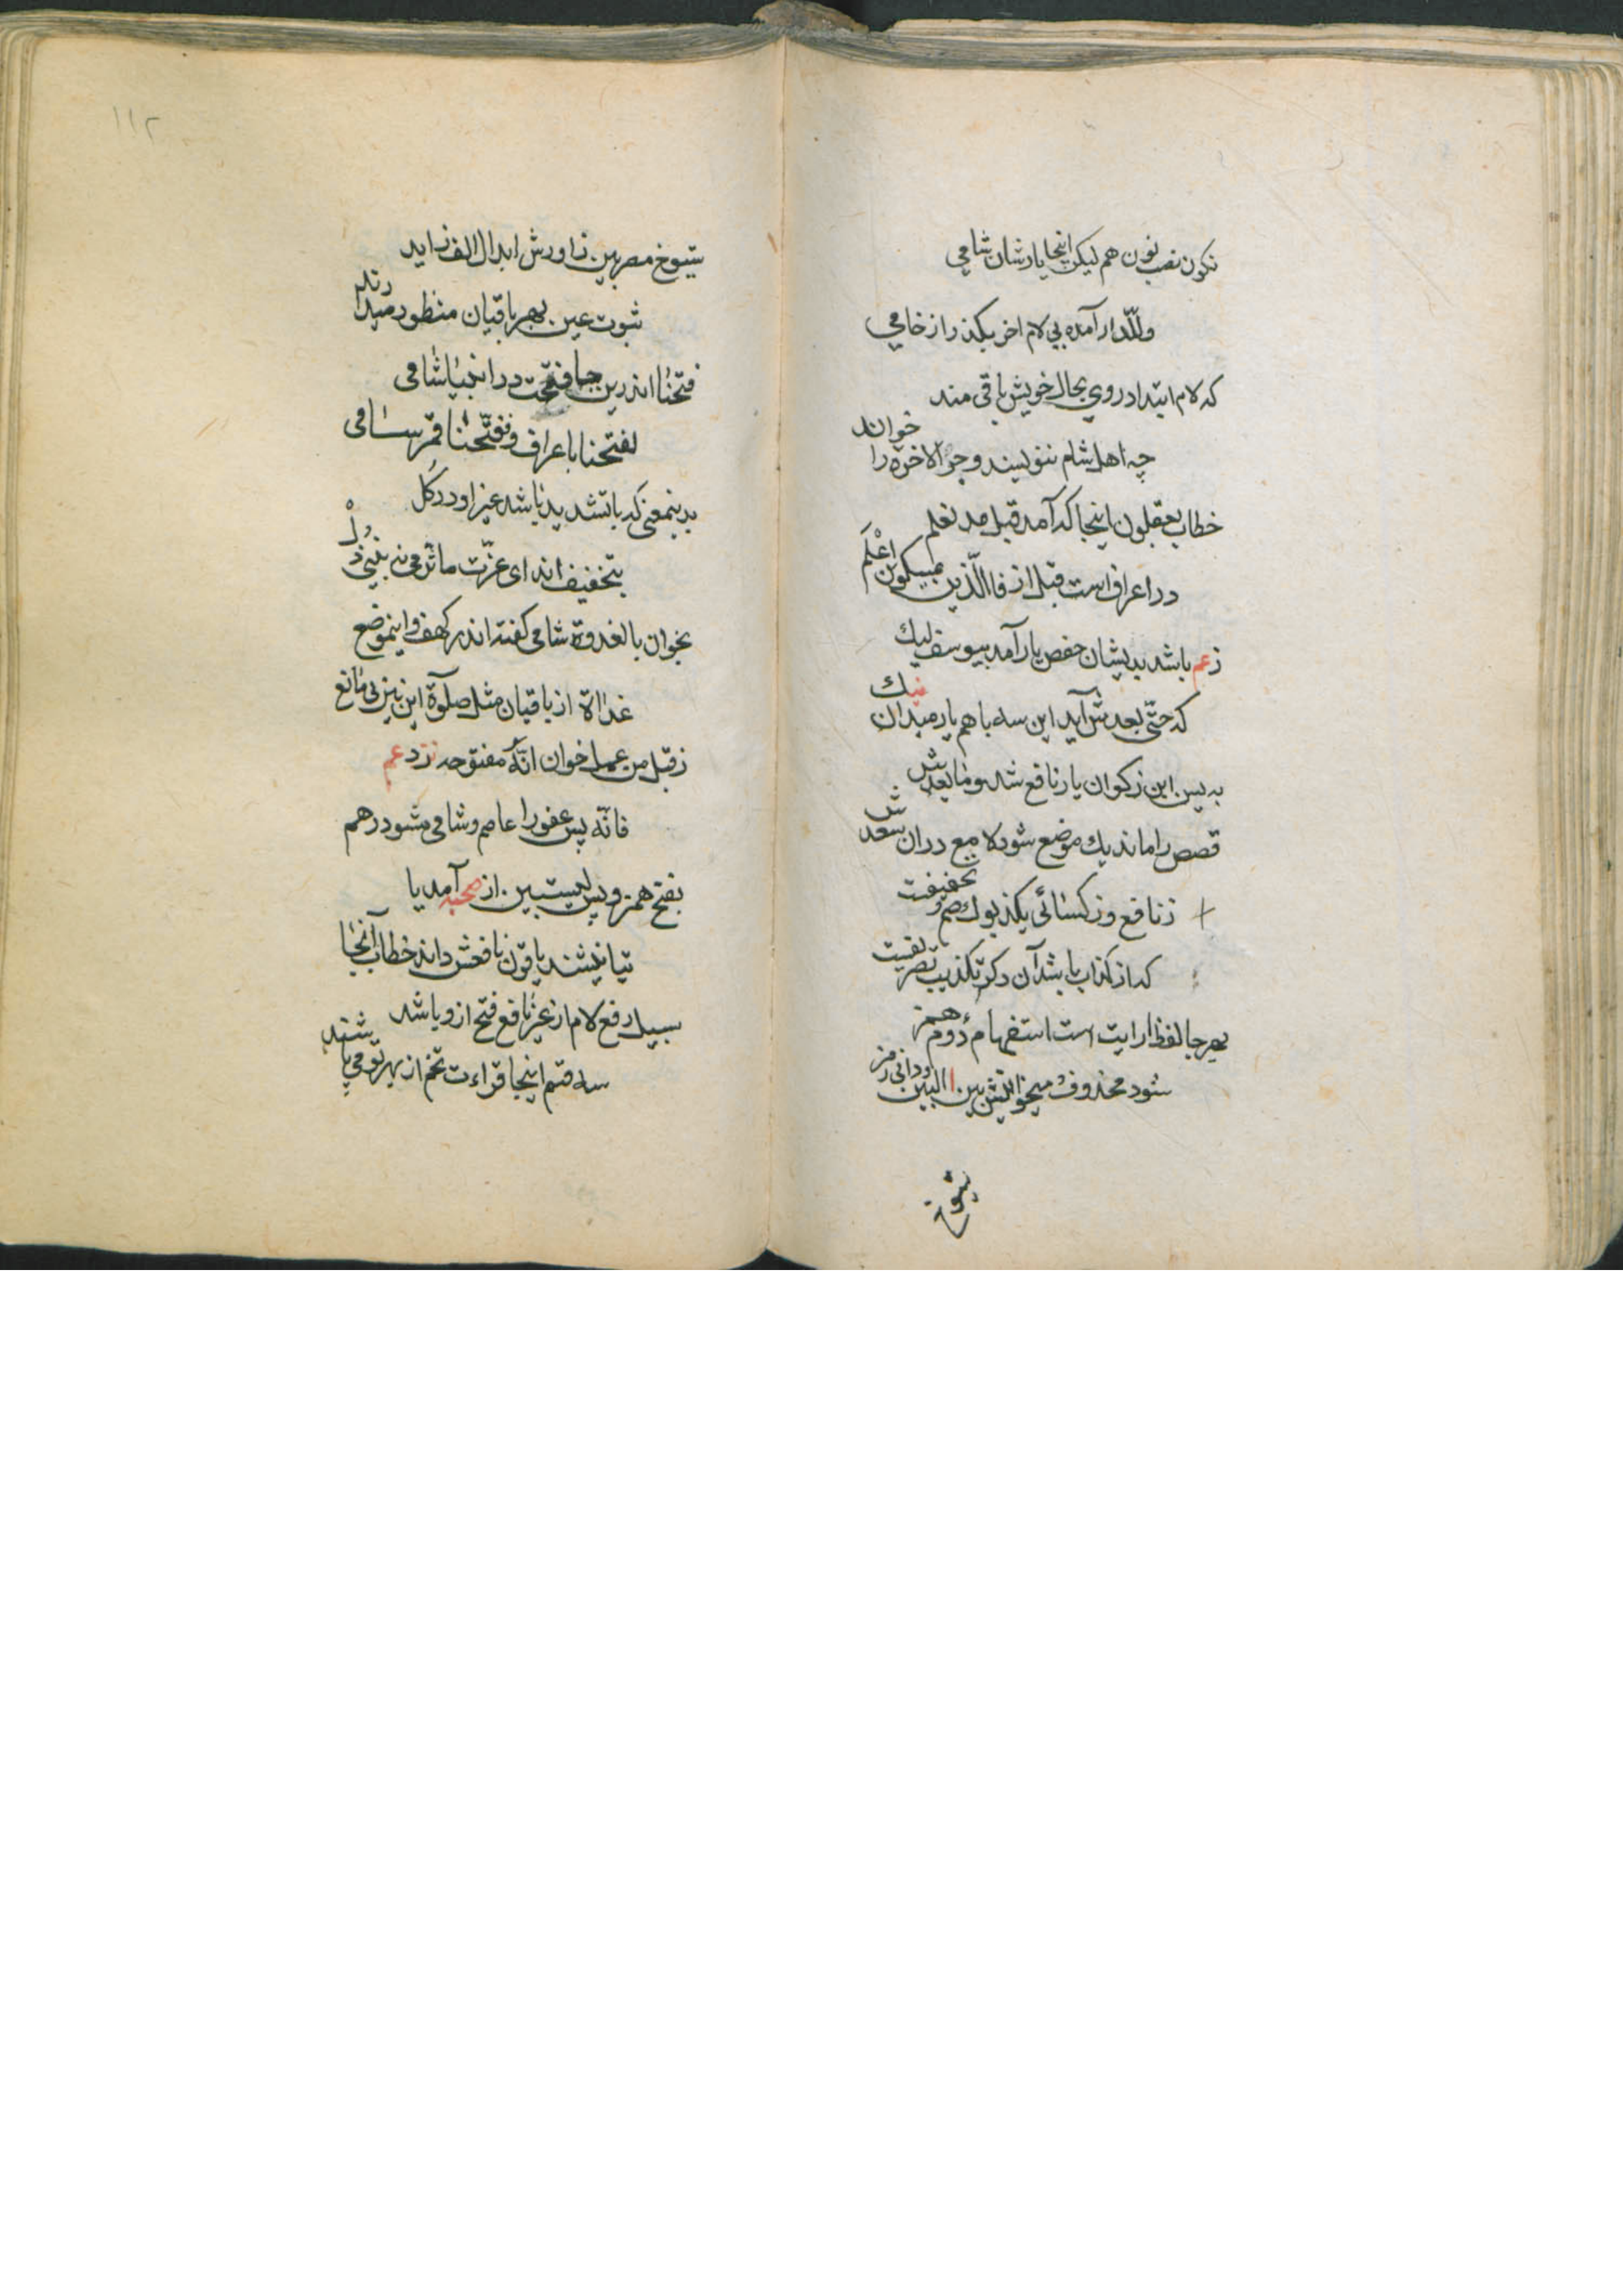 نکون نصب نون هم لیکن اینجا یارشان شامی
وللدار آمده بی لام اخر بکذر از خامی
که لام ابتدا در وی بحال خویش باقی مند
چه اهل شام ننویسند و جر الاخرة را خوانند
خطاب یعقلون اینجا که آمد قبل قد نعلم
در اعراف است قبل از فا الذین یمسکون اعلم
زعم باشد بدیشان حفص یار آمد بیوسف لیک
که حتی بعدش آید این سه با هم یار میدان نیک
به یس ابن ذکوان یار نافع شد وما بعدش
قصص را ماند یک موضع شود لامع دران سعدش
ز نافع وز کسائی یکذبوک تخفیفت
که از کذاب باشد آن دکر تکذیب
بهر جا لفظ ارایت است استفهام دوم همز
شود محذوف میخوانش بین البین و دانی رمز
ثبوت
١١٢
شیوخ مصریین زا ورش ابدال الف زاید
ثبوت عین بهر باقیان منظور میدارند
فتحنا اندرین جا فتحت در انبیا شامی
لفتحنا باعراف و ففتحنا قمر سامی
بدینمعنی که باتشدید باشد غیر او در کل
بتخفیف اند ای عزت
بخوان بالغدوة شامی کفته اندر کهف و اینموضع
غداة از باقیان مثل صلوة این نیز بی مانع
ز قبل من عمل خوان انه مفتوحه نزد عم
فانه پس غفور را عاصم و شامی شود رهم
بفتح همزه و پس لیستبین از صحبه آمد یا
خطاب آنجا
سبیل رفع لام از غیر نافع فتح ازو باشد
سه قسم اینجا قراءت